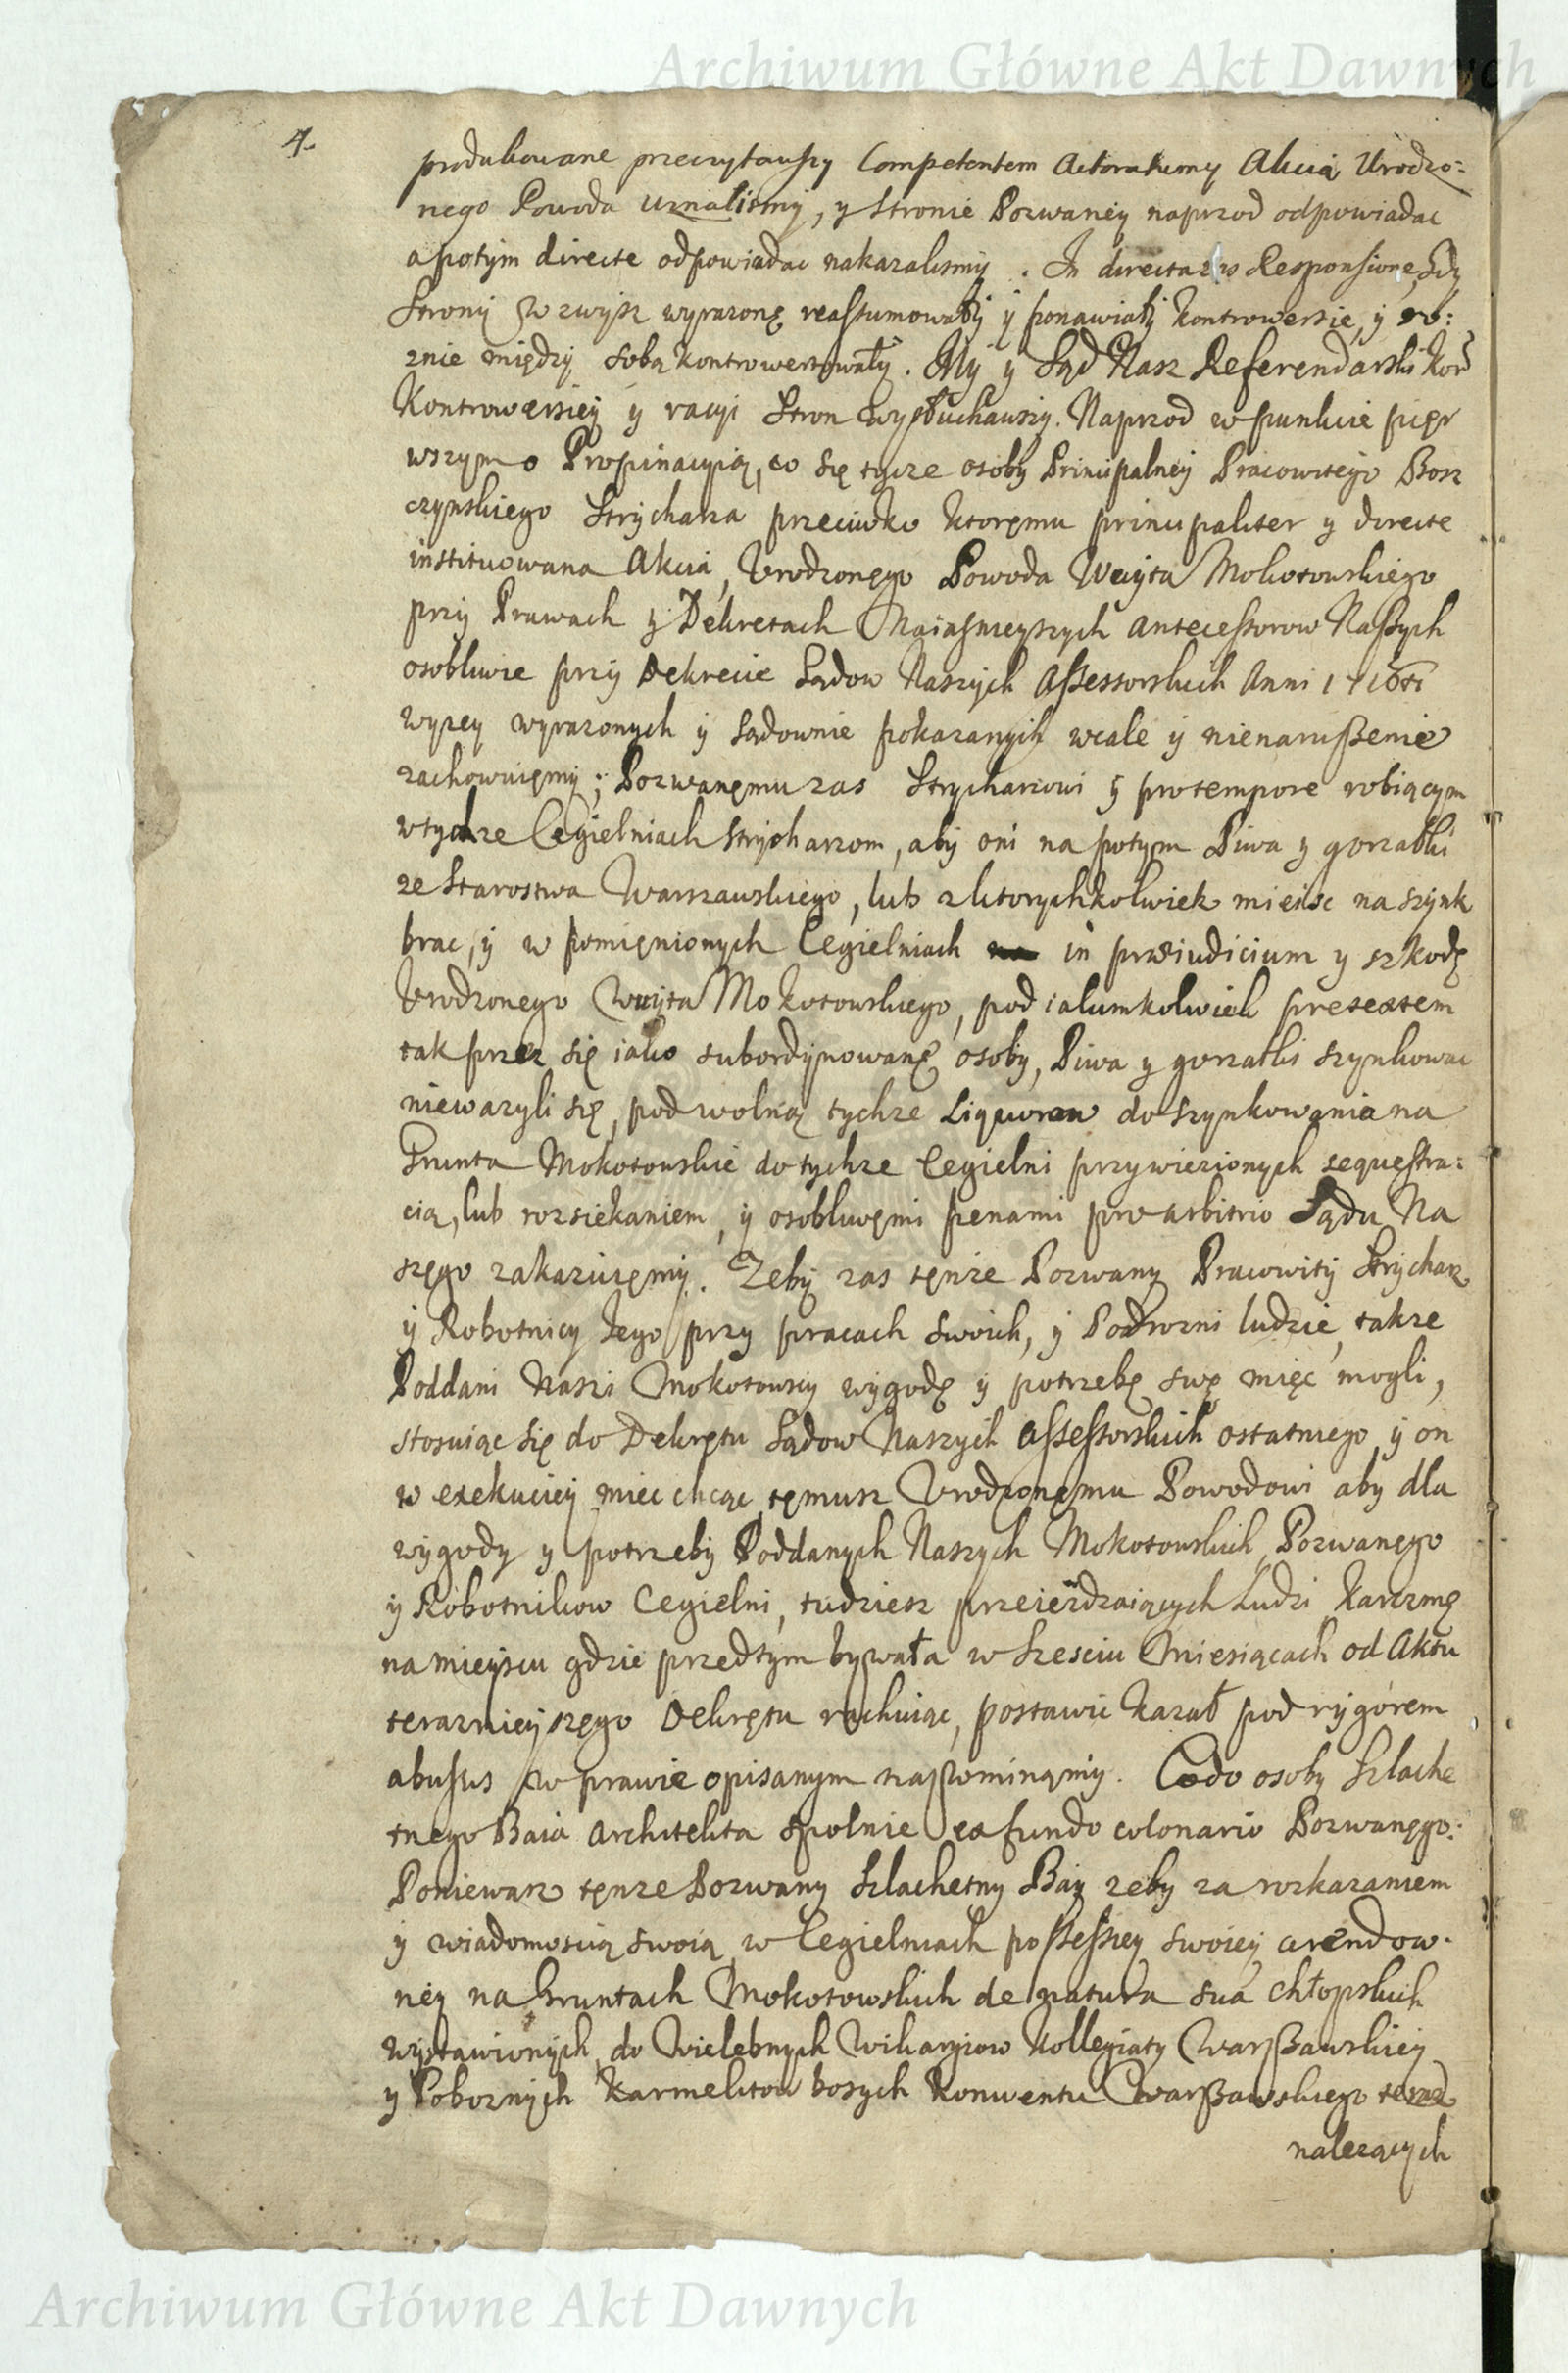 Archiwum Główne Akt Dawnych
4.
produkowane przeczytawszy Competentem Actoratumq Akcią Urodzo:
nego Powoda uznalismy, y stronie Pozwaney naprzod odpowiadac
a potym directe odpowiadac nakazalismy. In directa Responsione, gdy
Strony zwysz wyrazone reassumowały y ponawiały kontrowersie, y ro:
znie między sobą kontrowertowały. My y Sąd Nasz Referendarski Kor
Kontrowersiey y racyi Stron wysłuchawszy. Naprzod w punkcie pier
wszym o Propinacyią, co się tycze osoby Principalney Pracowitego Bosz
czynskiego Strycharza przeciwko ktoremu principaliter y directe
instituowana Akcia, Urodzonego Powoda Woyta Mokotowskiego
przy Prawach y Dekretach Naiasnieyszych Antecessorow Naszych
osobliwie przy Dekrecie Sądow Naszych Assessorskich Anni
wyzey wyrazonych y sądownie pokazanych wcale y nienarußenie
zachowuiemy; Pozwanemu zas Strycharzowi y protempore robiącym
w tychze Cegielniach strycharzom, aby oni na potym Piwa y gorzałki
ze Starostwa Warszawskiego, lub z ktorychkolwiek mieisc na szynk
brac, y w pomienionych Cegielniach in præiudicium y szkodę
Urodzonego Woyta Mokotowskiego, pod iakimkolwiek pretextem
tak przez się iako subordynowane osoby, Piwa y gorzałki szynkowac
niewazyli się, pod wolną tychze Liquorow do szynkowania na
Grunta Mokotowskie do tychze Cegielni przywiezionych sequestra:
cią, lub rozsiekaniem, y osobliwemi penami pro arbitrio Sądu Na
szego zakazuiemy. Zeby zas tenze Pozwany Pracowity Strycharz
y Robotnicy Jego przy pracach swoich, y Podrozni ludzie, takze
Poddani Nasi Mokotowscy wygodę y potrzebę swę miec mogli,
stosuiąc się do Dekretu Sądow Naszych Assessorskich ostatniego, y on
w exekuciey miec chcąc, temusz Urodzonemu Powodowi aby dla
wygody y potrzeby Poddanych Naszych Mokotowskich, Pozwanego
y Robotnikow Cegielni, tudziesz przeiezdzaiących Ludzi, karczmę
na mieyscu gdzie przedtym bywała w szesciu Miesiącach od Aktu
terazniejszego Dekretu rachuiąc, postawic kazał pod rygorem
abusus w prawie opisanym napominamy. Co do osoby Szlache
tnego Baia Architekta spolnie ex fundo colonario Pozwanego:
Poniewasz tenze Pozwany Szlachetny Bay zeby za rozkazaniem
y wiadomoscią swoią w Cegielniach possessiey swoiey arendow.
ney na Gruntach Mokotowskich de natura sua chłopskich
wystawionych, do Wielebnych Wikaryiow Kollegiaty Warßawskiey
y Poboznych Karmelitow bosych Konwentu Warßawskiego teraz
nalezących
Archiwum Główne Akt Dawnych